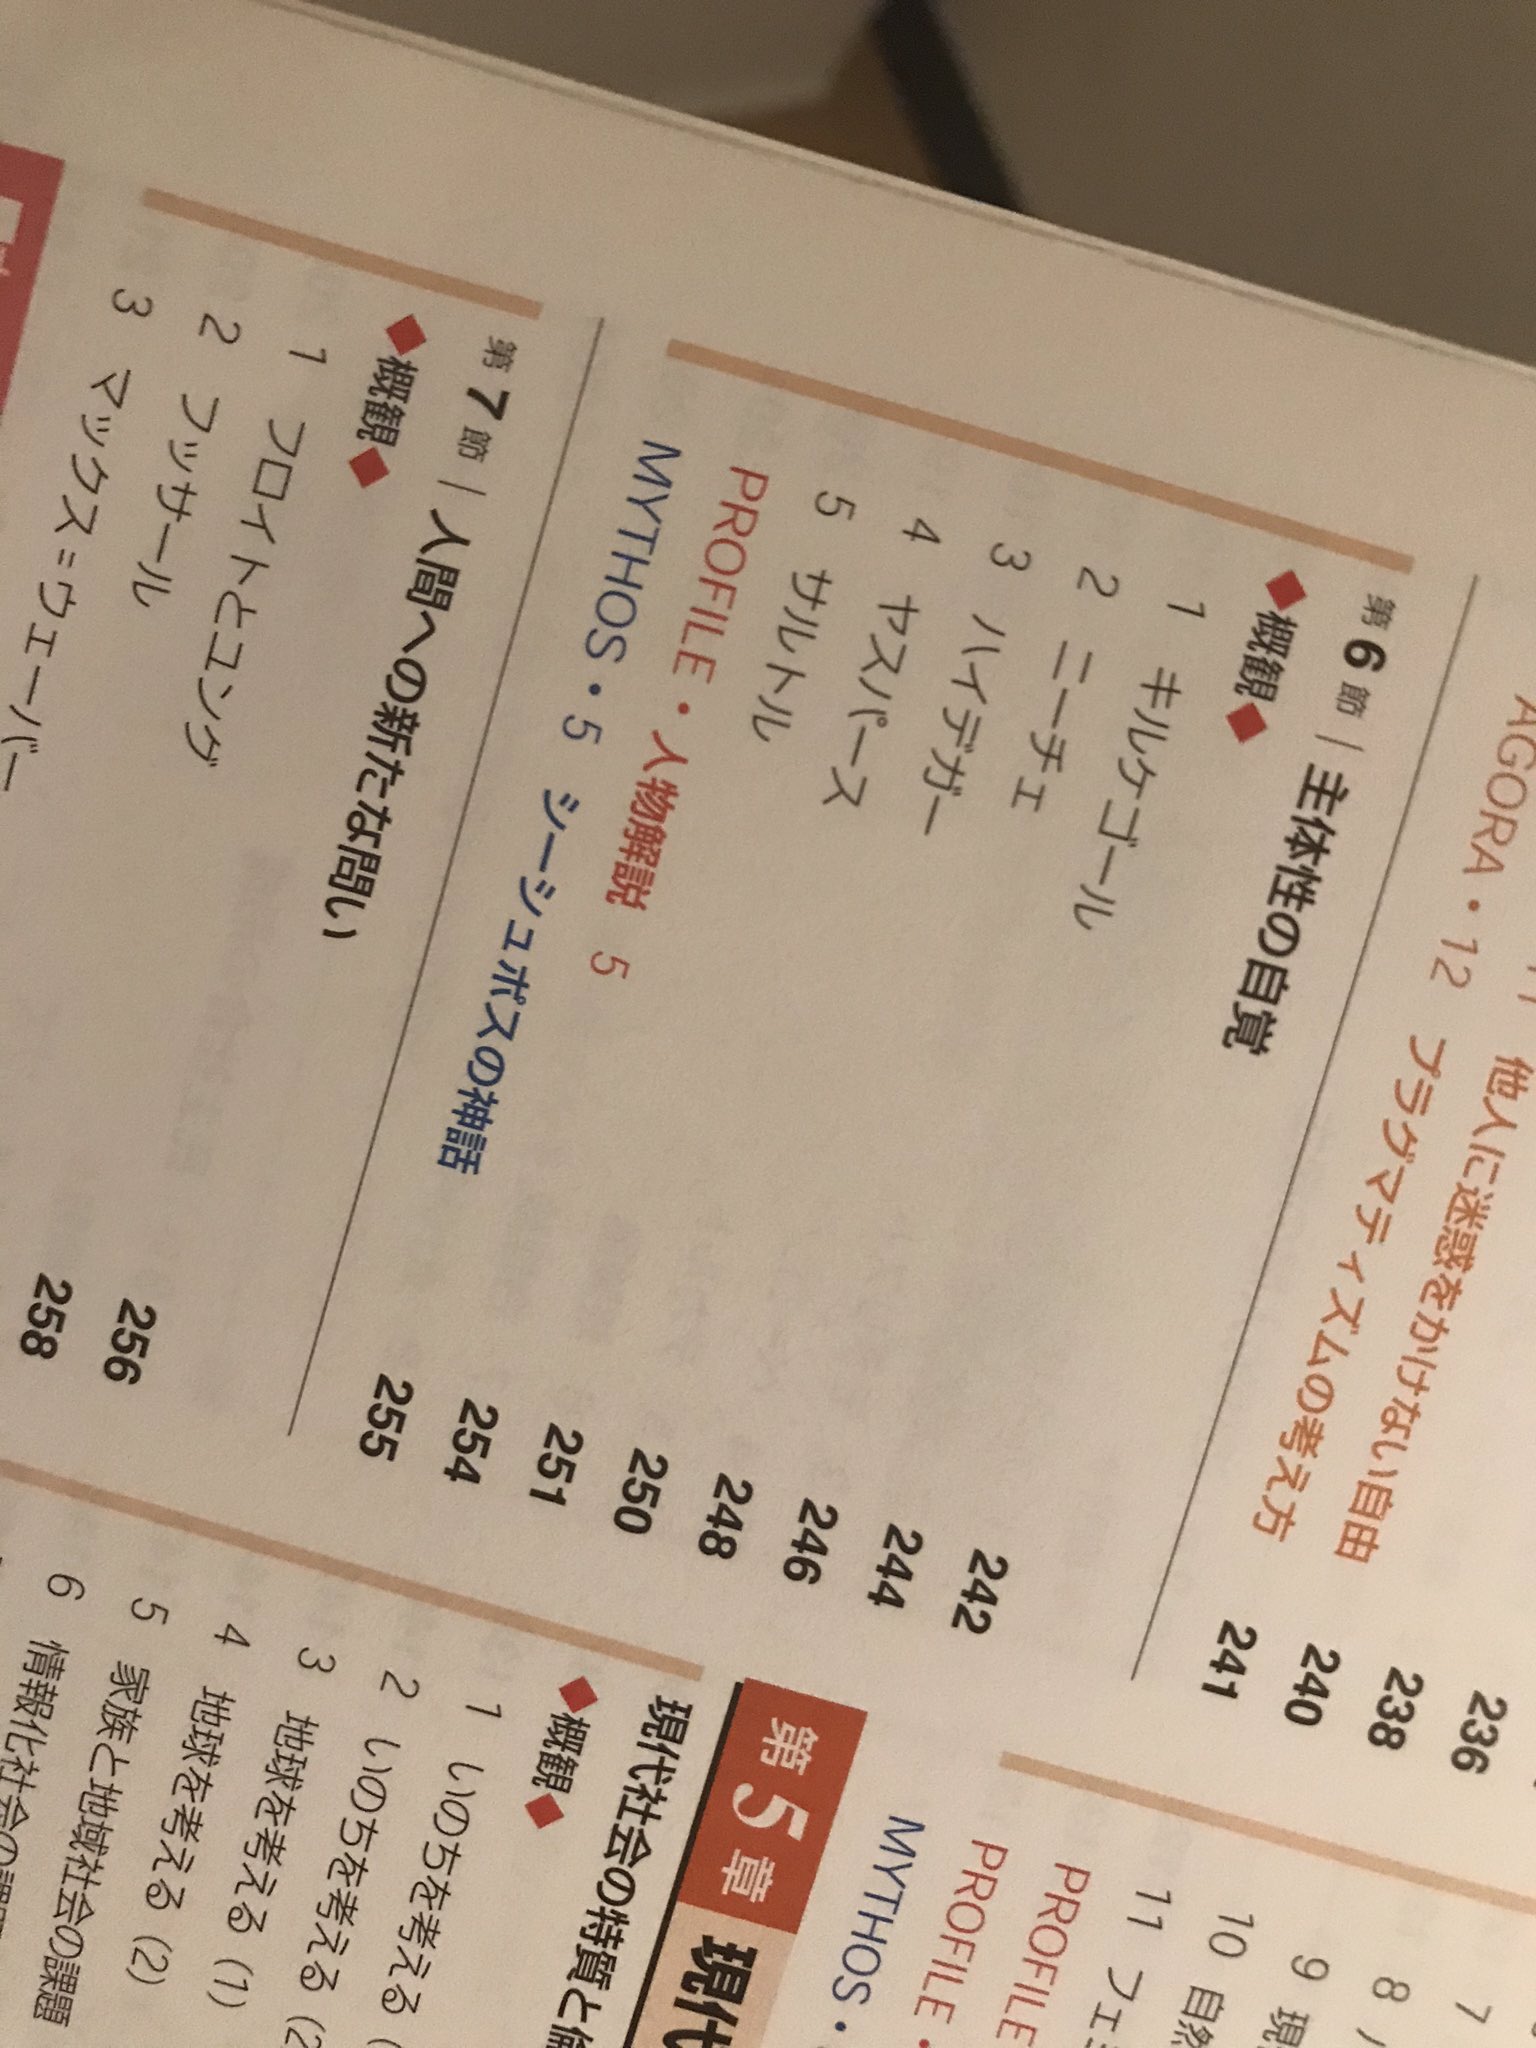 236
238
他人に迷惑をかけない自由 240
AGORA・12 プラグマティズムの考え方 241
第6節 | 主体性の自覚
◆概観◆ 242
1 キルケゴール 244
2 ニーチェ 246
3 ハイデガー 248
4 ヤスパース 250
5 サルトル 251
PROFILE・人物解説 5 254
MYTHOS・5 シーシュポスの神話 255
第7節 | 人間への新たな問い
◆概観◆ 256
1 フロイトとユング 258
2 フッサール
3 マックス=ウェーバー
7
8
9 現
10 自然
11 フェ
PROFILE
PROFILE・
MYTHOS・
第5章 現代
現代社会の特質と倫
◆概観◆
1 いのちを考える (
2 いのちを考える (2
3 地球を考える (1)
4 地球を考える (2)
5 家族と地域社会の課題
6 情報化社会の課題